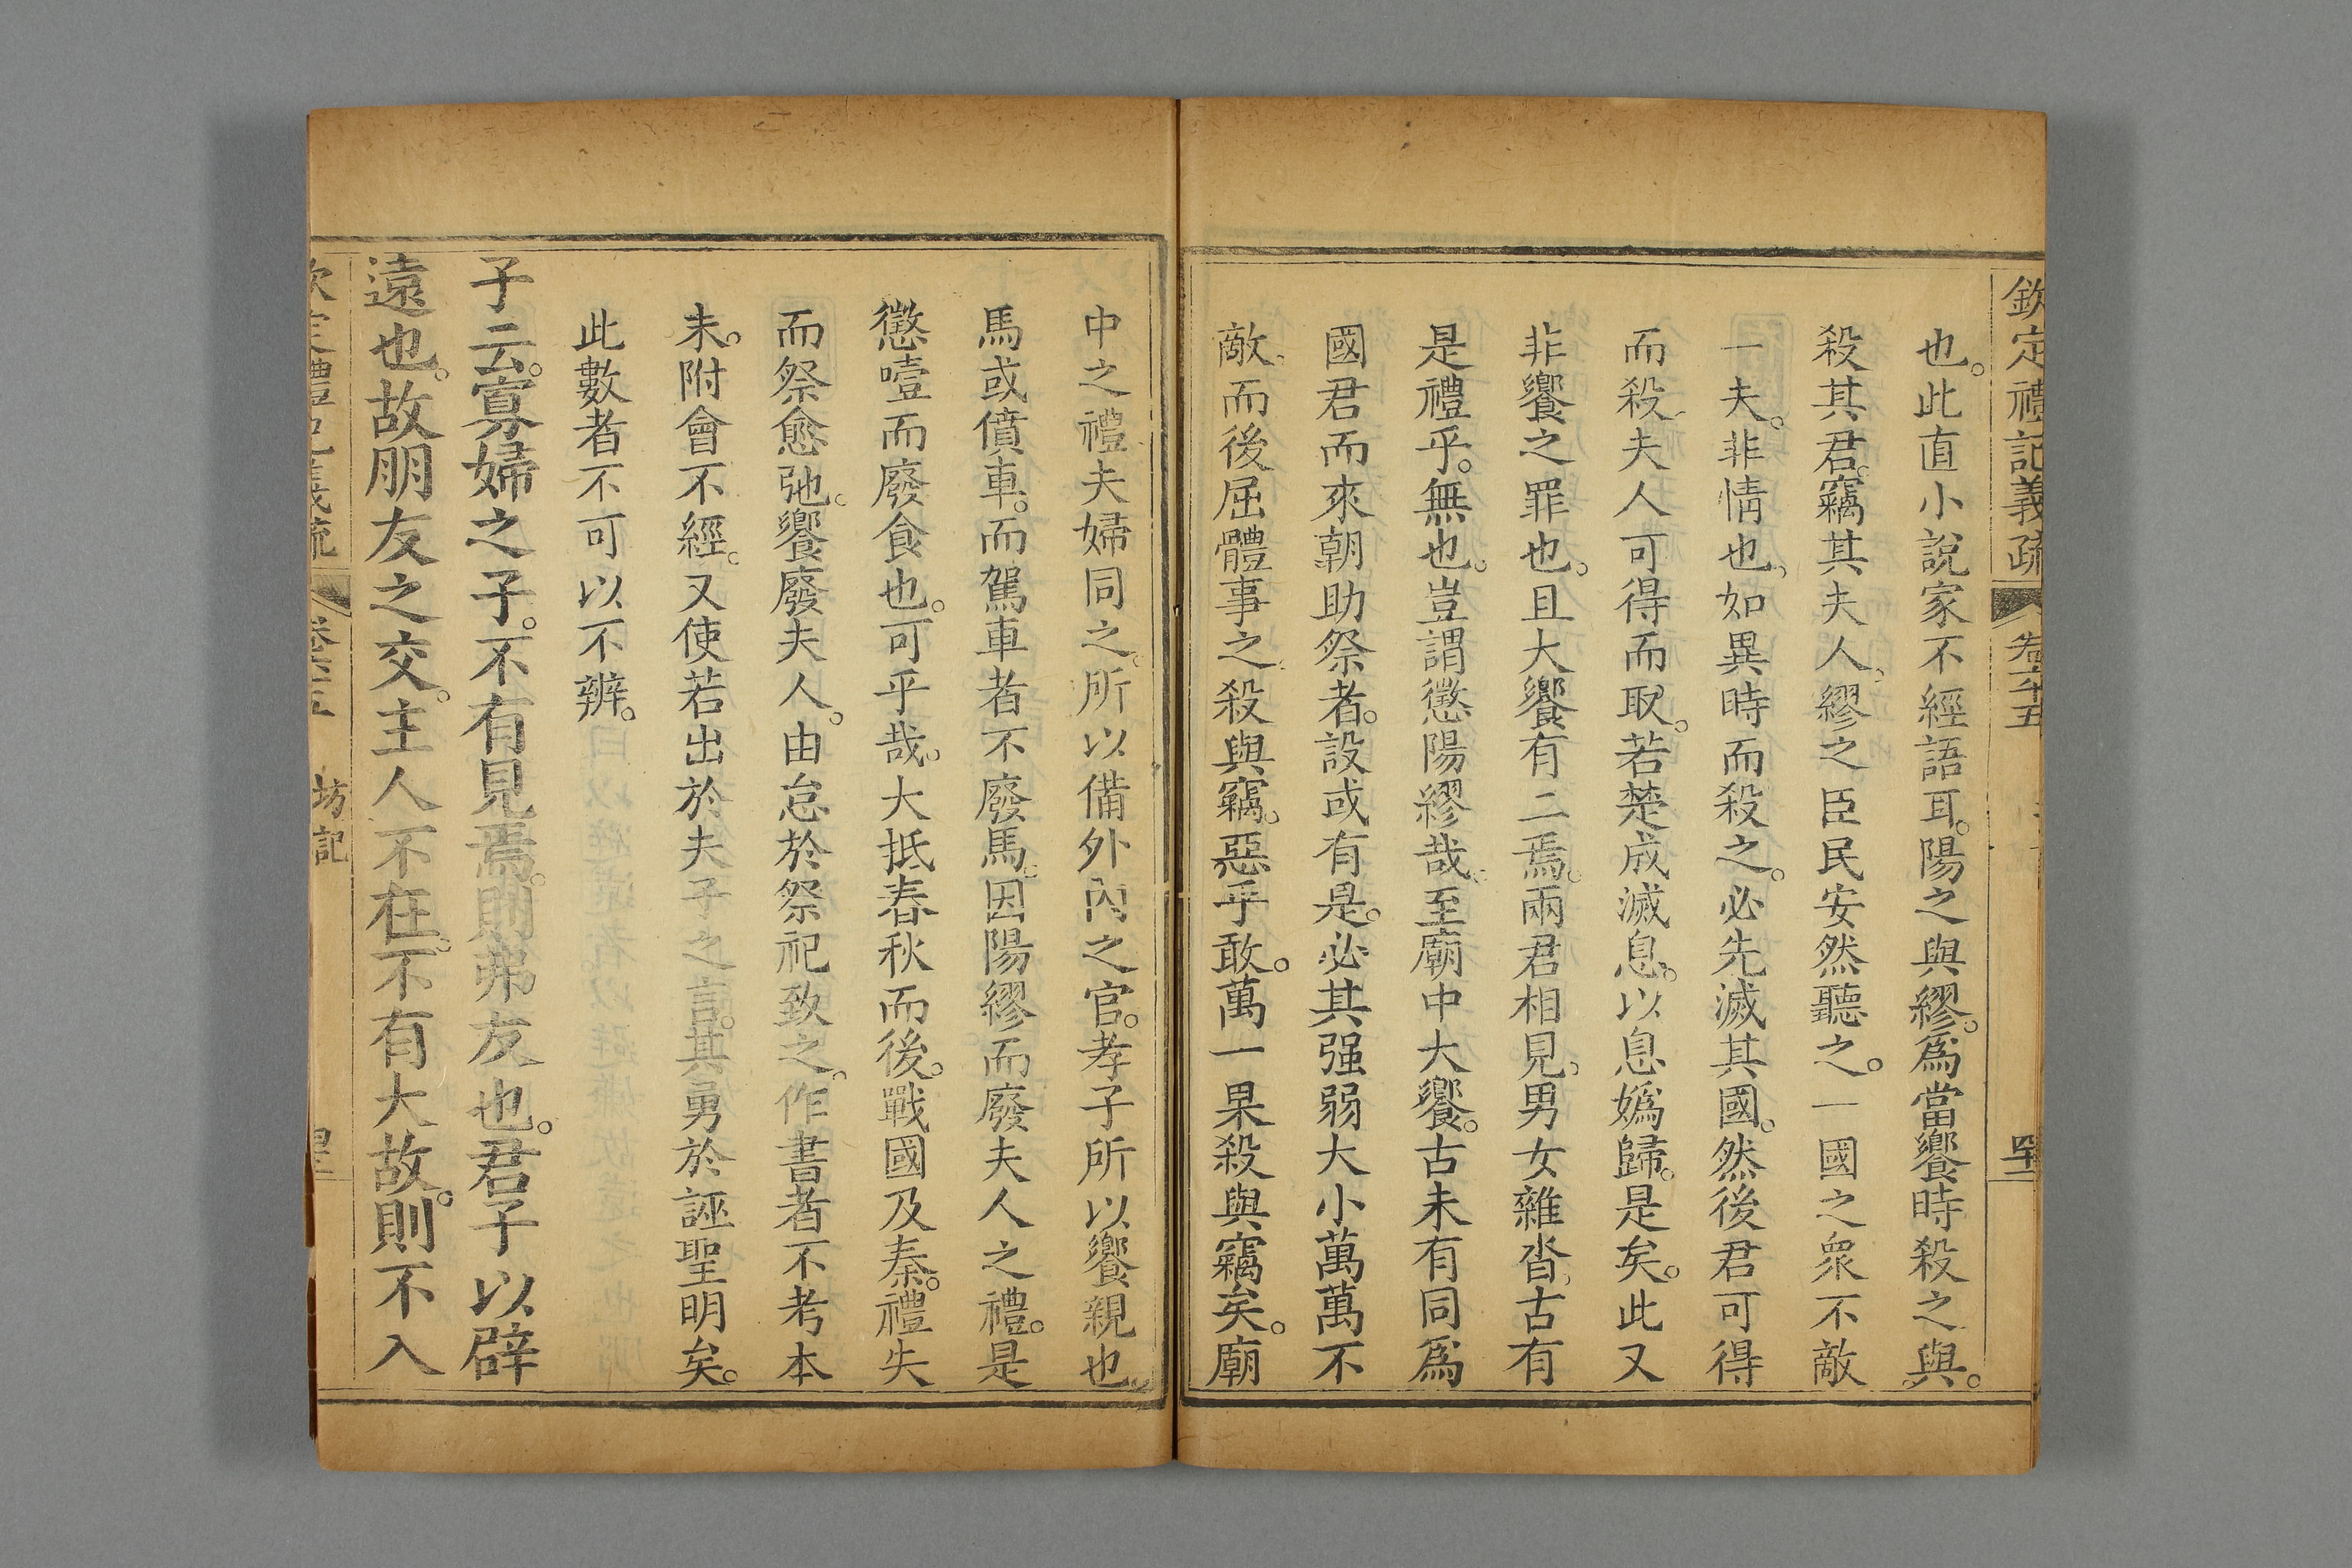 欽定禮記義疏 卷六十五
也此直小說家不經語耳陽之與繆爲當饗時殺之與
殺其君竊其夫人繆之臣民安然聽之一國之衆不敵
一夫非情也如異時而殺之必先滅其國然後君可得
而殺夫人可得而取若楚成滅息以息嬀歸是矣此又
非饗之罪也且大饗有二焉兩君相見男女雜沓古有
是禮乎無也豈謂懲陽繆哉至廟中大饗古未有同爲
國君而來朝助祭者設或有是必其强弱大小萬萬不
敵而後屈體事之殺與竊惡乎敢萬一果殺與竊矣廟
中之禮夫婦同之所以備外內之官孝子所以饗親也
馬或僨車而駕車者不廢馬因陽繆而廢夫人之禮是
懲噎而廢食也可乎哉大抵春秋而後戰國及秦禮失
而祭愈弛饗廢夫人由怠於祭祀致之作書者不考本
末附會不經又使若出於夫子之言其勇於誣聖明矣
此數者不可以不辨
子云寡婦之子不有見焉則弗友也君子以辟
遠也故朋友之交主人不在不有大故則不入
欽定禮記義疏 卷六十五 坊記